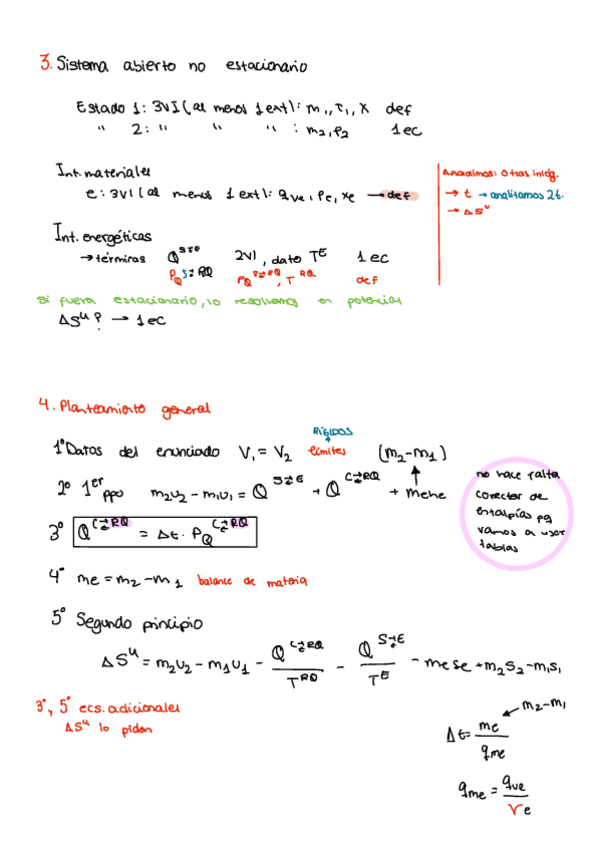 3. Sistema abierto no estacionario
Estado 1: 3VI (al menos 1 ext): m₁, T₁, x def
" 2: " " " : m₂, P₂ 1 ec
Int. materiales
e: 3VI (al menos 1 ext): qve, Pe, xe → def
Añadimos: Otras incóg.
→ t → analizamos 2t.
→ ΔSᵘ
Int. energéticas
→ térmicas Q^S⇄E 2VI, dato T^E 1 ec
P_Q^S⇄RQ P_Q^S⇄RQ, T^RQ def
si fuera estacionario, lo resolvemos en potencias
ΔSᵘ? → 1 ec
4. Planteamiento general
1º Datos del enunciado V₁ = V₂ límites RÍGIDOS
(m₂-m₁)
2º 1er ppo m₂u₂ - m₁u₁ = Q^S⇄E + Q^C⇄RQ + mehe
no hace falta
corrector de
entalpías pq
vamos a usar
tablas
3º Q^C⇄RQ = Δt · P_Q^C⇄RQ
4º me = m₂ - m₁ balance de materia
5º Segundo principio
ΔSᵘ = m₂u₂ - m₁u₁ - Q^C⇄RQ / T^RQ - Q^S⇄E / T^E - mese + m₂s₂ - m₁s₁
3º, 5º ecs. adicionales
ΔSᵘ lo piden
m₂-m₁
Δt = me / qme
qme = qve / ve